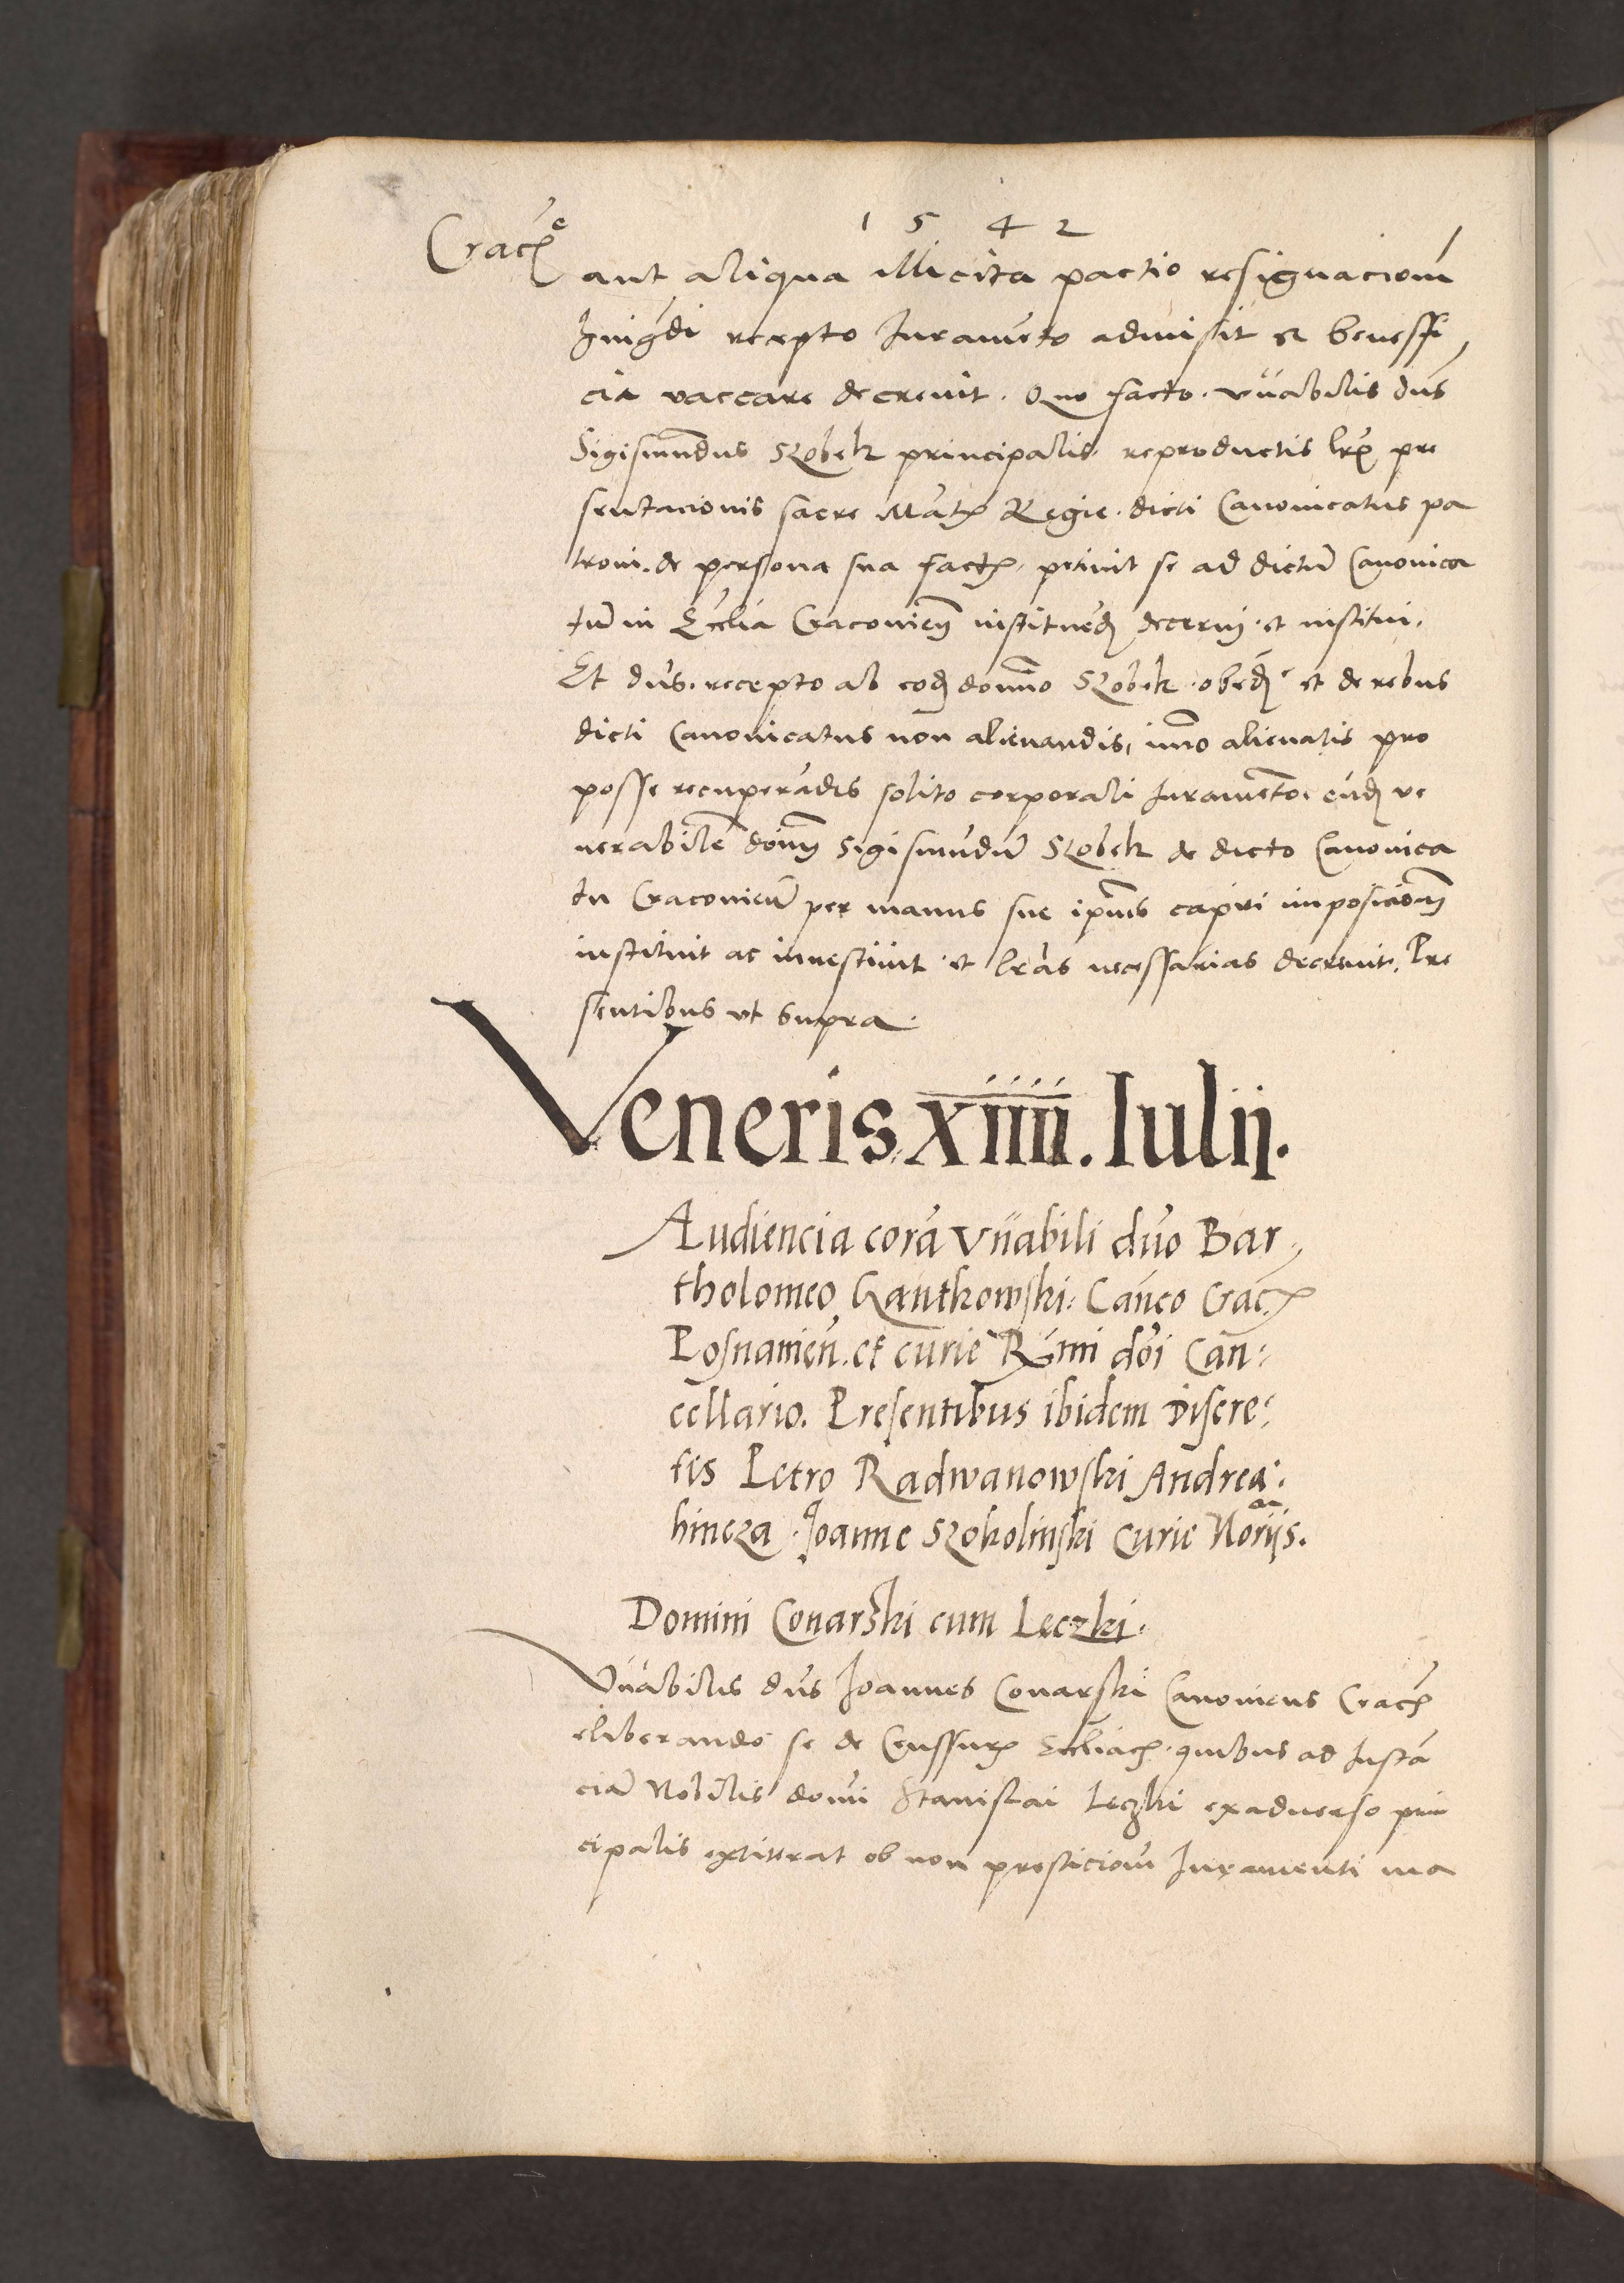 1 5 4 2
Cracᵉ
aut aliqua illicita pactio resignacioni
recepto Iuramẽto admisit et beneffi
cia vaccare decrevit. Quo facto. vn̄abilis dn̄s
Sigismundus Szobek principalis reproductis lrȩ pre
sentacionis sacre Mat̄ Regie. dicti Canonicatus pa
troni. de persona sua fact. petiuit se ad dictū Canonica
tū in Ecc̄lia Cracovień instituẽd decerni. et institui.
Et dn̄s. recepto ab eod domino Szobek. obed et de rebus
dicti Canonicatus non alienandis, imo alienatis pro
posse recuperādis solito corporali Iuramẽto. eūd ve
nerabilē doim̄ Sigismūdū Szobek de dicto Canonica
tu Cracovień per manus sue ip̄ius capiti imposicioem
instituit ac investiuit. et lrās necessarias decrevit. Pre
sentibus ut supra.
Veneris. xiiii. Iulij.
Audiencia corā Vn̄abili dn̄o Bar
tholomeo Gantkowski. Cań͠co Crac̄
Posnanień. et curie R̄mi doī Can:
cellario. Presentibus ibidem discre:
tis Petro Radwanowski Andrea.
hincza. Joanne Szokolinski Curie Norijs.
Domini Conarski cum Leczki.
Vn̄abilis dn̄s Joannes Conarski Canonicus Crac̄
eliberando se de Censsurȩ Eccl̄iac̄. quibus ad Instā
ciā Nobilis domi Stanislai Leczki exaduerso prin
cipalis extiterat ob non presticionē Iuramenti ma